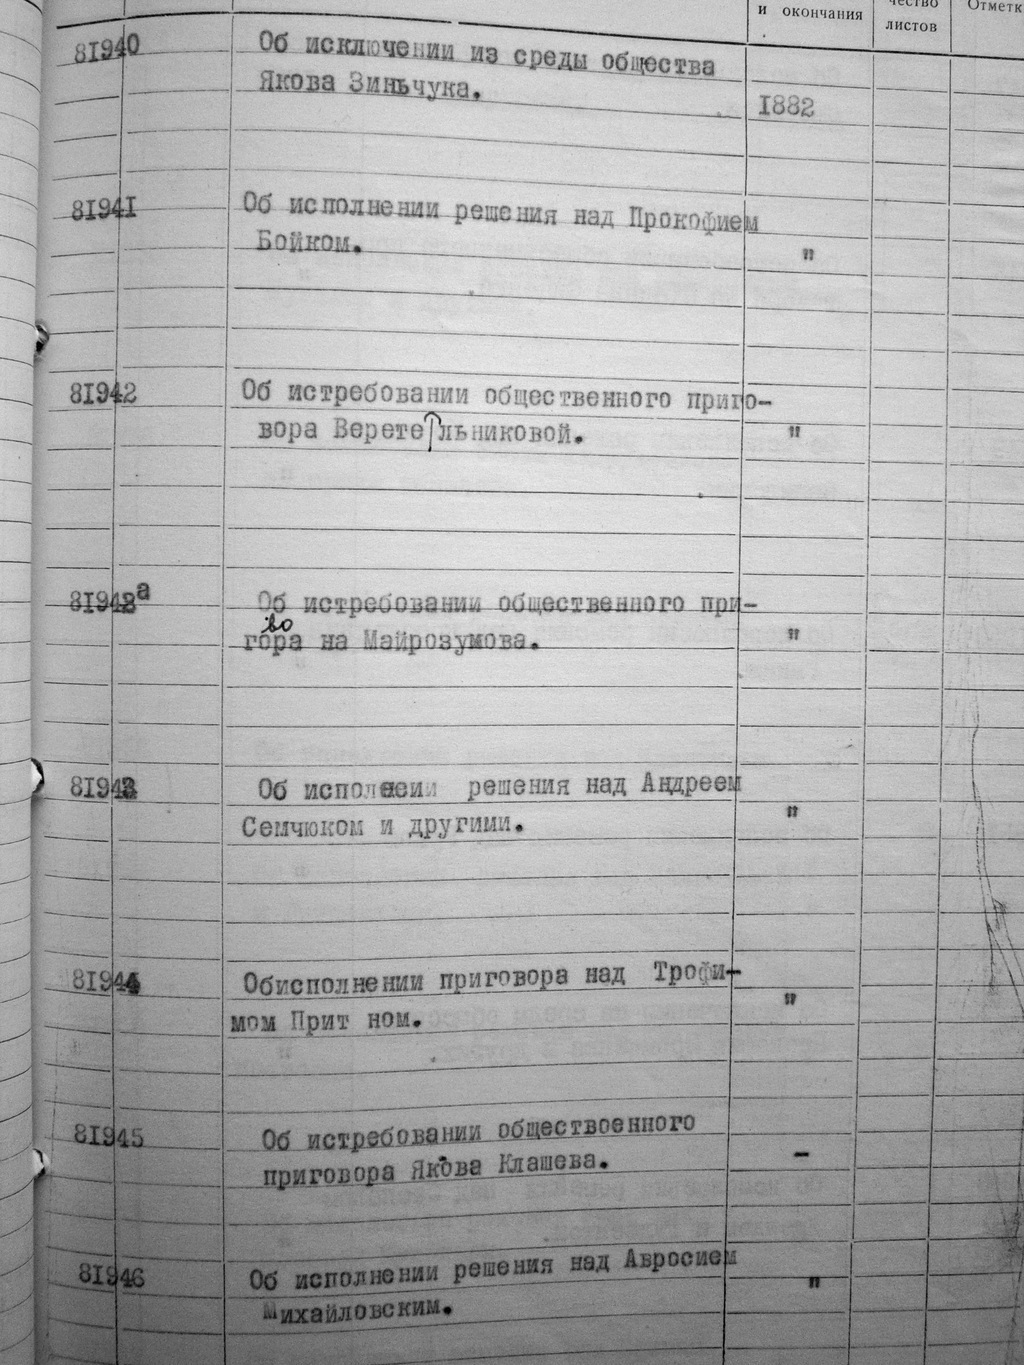 и окончания
чество
листов
Отметк
81940
Об исключении из среды общества
Якова Зиньчука.
1882
81941
Об исполнении решения над Прокофием
Бойком.
"
81942
Об истребовании общественного приго-
вора Веретельниковой.
"
81942а
Об истребовании общественного при-
во
гора на Майрозумова.
"
81943
Об исполнеии решения над Андреем
Семчюком и другими.
"
81944
Обисполнении приговора над Трофи-
мом Прит ном.
"
81945
Об истребовании обществоенного
приговора Якова Клашева.
-
81946
Об исполнении решения над Авросием
Михайловским.
"